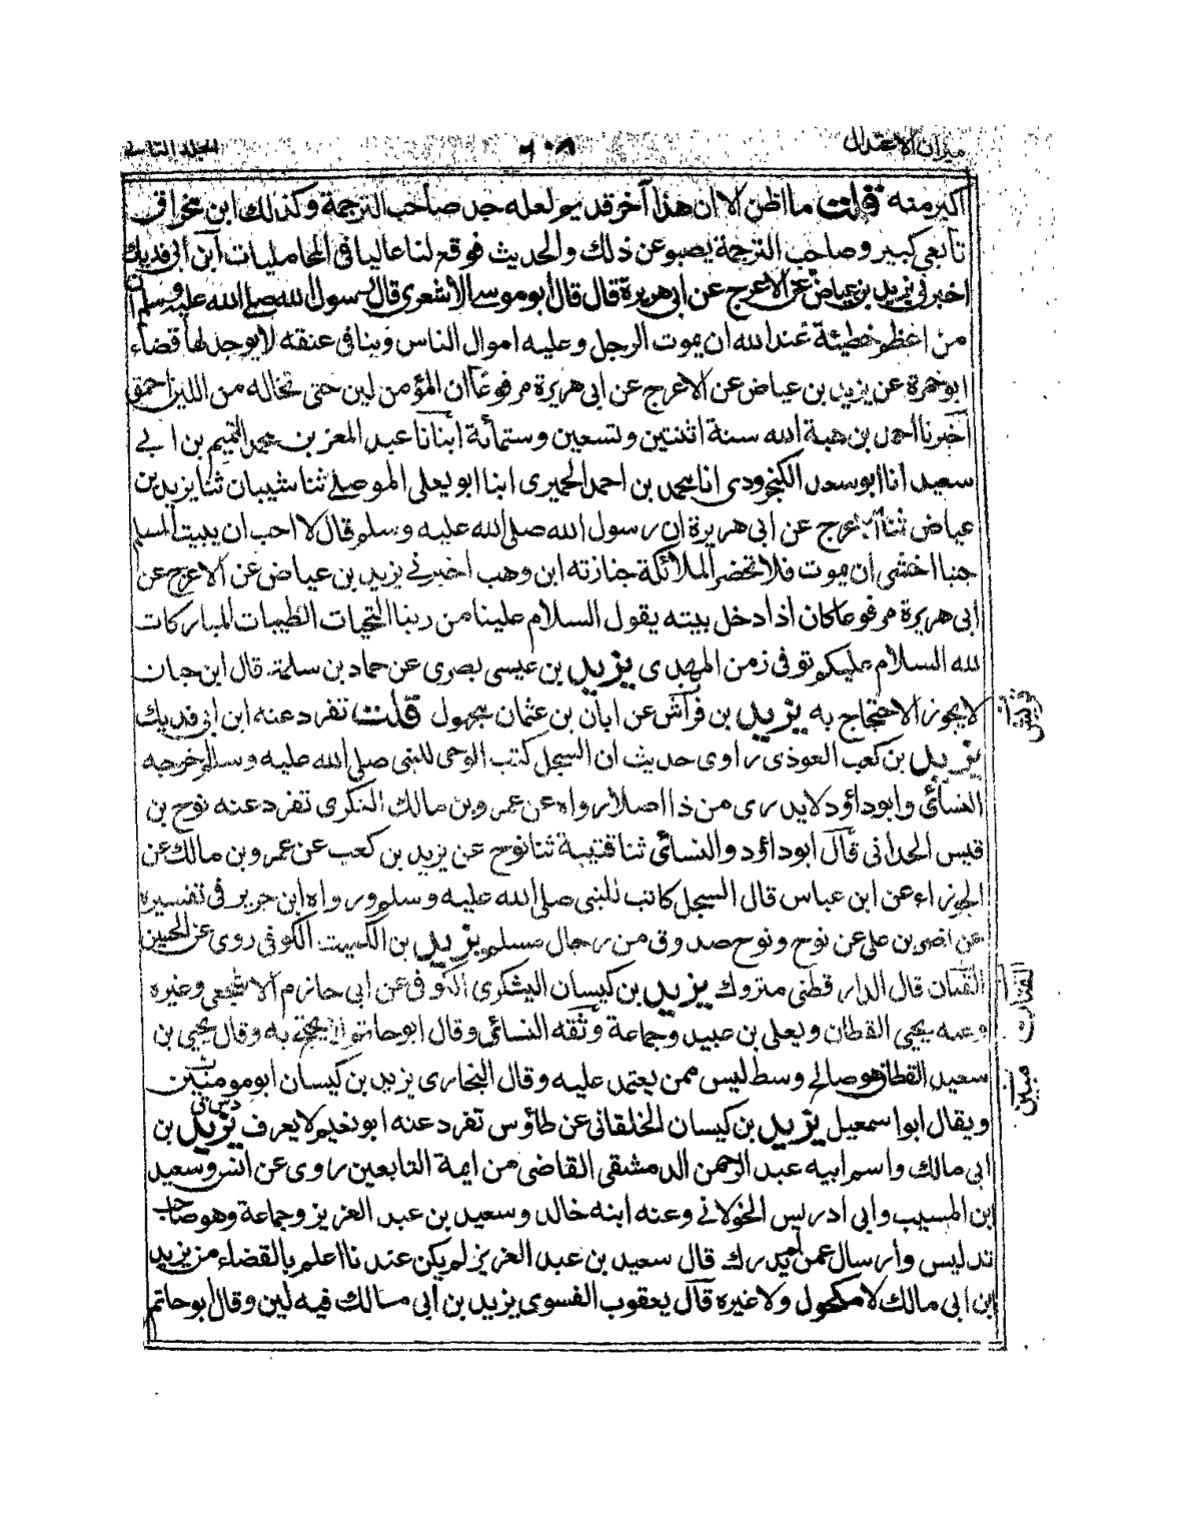 ميزان الاعتدال
المجلد الثاني
اكبر منه قلت ما اظن الا ان هذا آخر قديم لعله جد صاحب الترجمة وكذلك ابن مخراق
تابعي كبير وصاحب الترجمة يصبو عن ذلك والحديث فوقع لنا عاليا في المحامليات ابن ابي فديك
اخبرني يزيد بن عياض عن الاعرج عن ابي هريرة قال قال ابو موسى الاشعري قال رسول الله صلى الله عليه وسلم ان
من اعظم خطيئة عند الله ان يموت الرجل وعليه اموال الناس دينا في عنقه لا يوجد لها قضاء
ابو ضمرة عن يزيد بن عياض عن الاعرج عن ابي هريرة مرفوعا ان المؤمن لين حتى تخاله من اللين احمق
اخبرنا احمد بن هبة الله سنة اثنتين وتسعين وستمائة انبانا عبد المعز بن محمد انا تميم بن ابي
سعيد انا ابو سعد الكنجرودي انا محمد بن احمد الحميرى ابنا ابو يعلى الموصلي ثنا شيبان ثنا يزيد بن
عياض ثنا الاعرج عن ابي هريرة ان رسول الله صلى الله عليه وسلم قال لا احب ان يبيت المسلم
جنبا اخشى ان يموت فلا تحضر الملائكة جنازته ابن وهب اخبرني يزيد بن عياض عن الاعرج عن
ابي هريرة مرفوعا كان اذا دخل بيته يقول السلام علينا من ربنا التحيات الطيبات المباركات
لله السلام عليكم توفي زمن المهدى يزيد بن عيسى بصرى عن حماد بن سلمة قال ابن حبان
لا يجوز الاحتجاج به يزيد بن فراش عن ابان بن عثمان مجهول قلت تفرد عنه ابن ابي فديك
يزيد بن كعب العوذى راوى حديث ان السجل كتب الوحى للنبى صلى الله عليه وسلم خرجه
النسائى وابو داؤد لا يدرى من ذا اصلا رواه عن عمرو بن مالك النكرى تفرد عنه نوح بن
قيس الحدانى قال ابو داؤد والنسائى ثنا قتيبة ثنا نوح عن يزيد بن كعب عن عمرو بن مالك عن
ابى الجوزاء عن ابن عباس قال السجل كاتب للنبى صلى الله عليه وسلم ورواه ابن جرير فى تفسيره
عن نصر بن على عن نوح ونوح صدوق من رجال مسلم يزيد بن الكميت الكوفى روى عن الحسين
القتات قال الدارقطنى متروك يزيد بن كيسان اليشكرى الكوفى عن ابى حازم الاشجعى وغيره
وعنه يحيى القطان ويعلى بن عبيد وجماعة وثقه النسائى وقال ابو حاتم لا يحتج به وقال يحيى بن
سعيد القطان هو صالح وسط ليس ممن يعتمد عليه وقال البخارى يزيد بن كيسان ابو منين
ويقال ابو اسمعيل يزيد بن كيسان الخلقانى عن طاؤس تفرد عنه ابو نعيم لا يعرف يزيد بن
ابى مالك واسم ابيه عبد الرحمن الدمشقى القاضى من ايمة التابعين روى عن انس وسعيد
ابن المسيب وابى ادريس الخولانى وعنه ابنه خالد وسعيد بن عبد العزيز وجماعة وهو صاحب
تدليس وارسال عمن لم يدرك قال سعيد بن عبد العزيز لم يكن عندنا اعلم بالقضاء من يزيد
ابن ابى مالك لا مكحول ولا غيره قال يعقوب الفسوى يزيد بن ابى مالك فيه لين وقال ابو حاتم